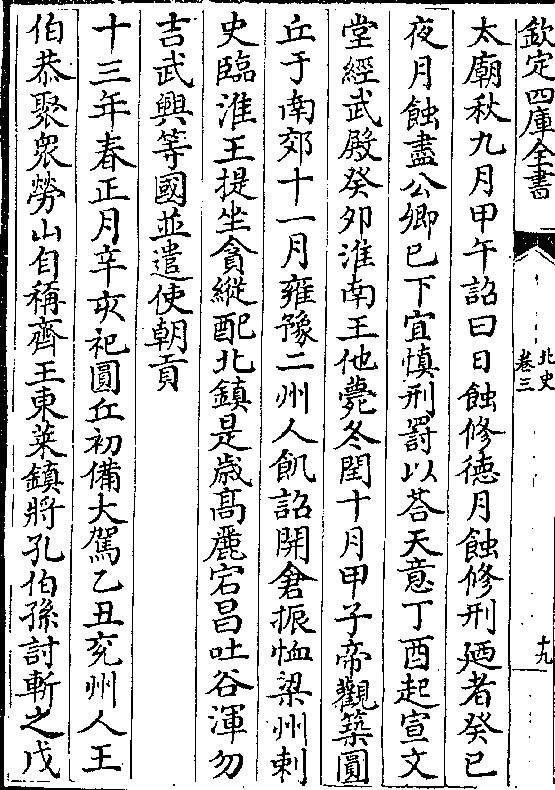 欽定四庫全書
北史
卷三
十九
太廟秋九月甲午詔曰日蝕修徳月蝕修刑廼者癸巳
夜月蝕盡公卿已下宜慎刑罰以荅天意丁酉起宣文
堂經武殿癸夘淮南王他薨冬閏十月甲子帝觀築圓
丘于南郊十一月雍豫二州人飢詔開倉振恤梁州刺
史臨淮王提坐貪縱配北鎮是歲髙麗宕昌吐谷渾勿
吉武興等國並遣使朝貢
十三年春正月辛亥祀圓丘初備大駕乙丑兖州人王
伯恭聚衆勞山自稱齊王東萊鎮將孔伯孫討斬之戊